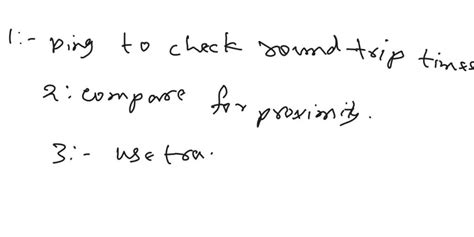 1:- ping to check round trip times
2: compare for proximity.
3:- use tra.